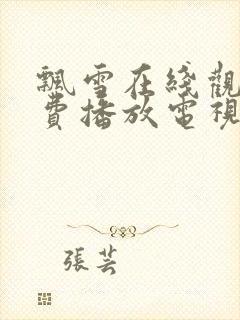 飄雪在綫觀
費播放電視
張芸